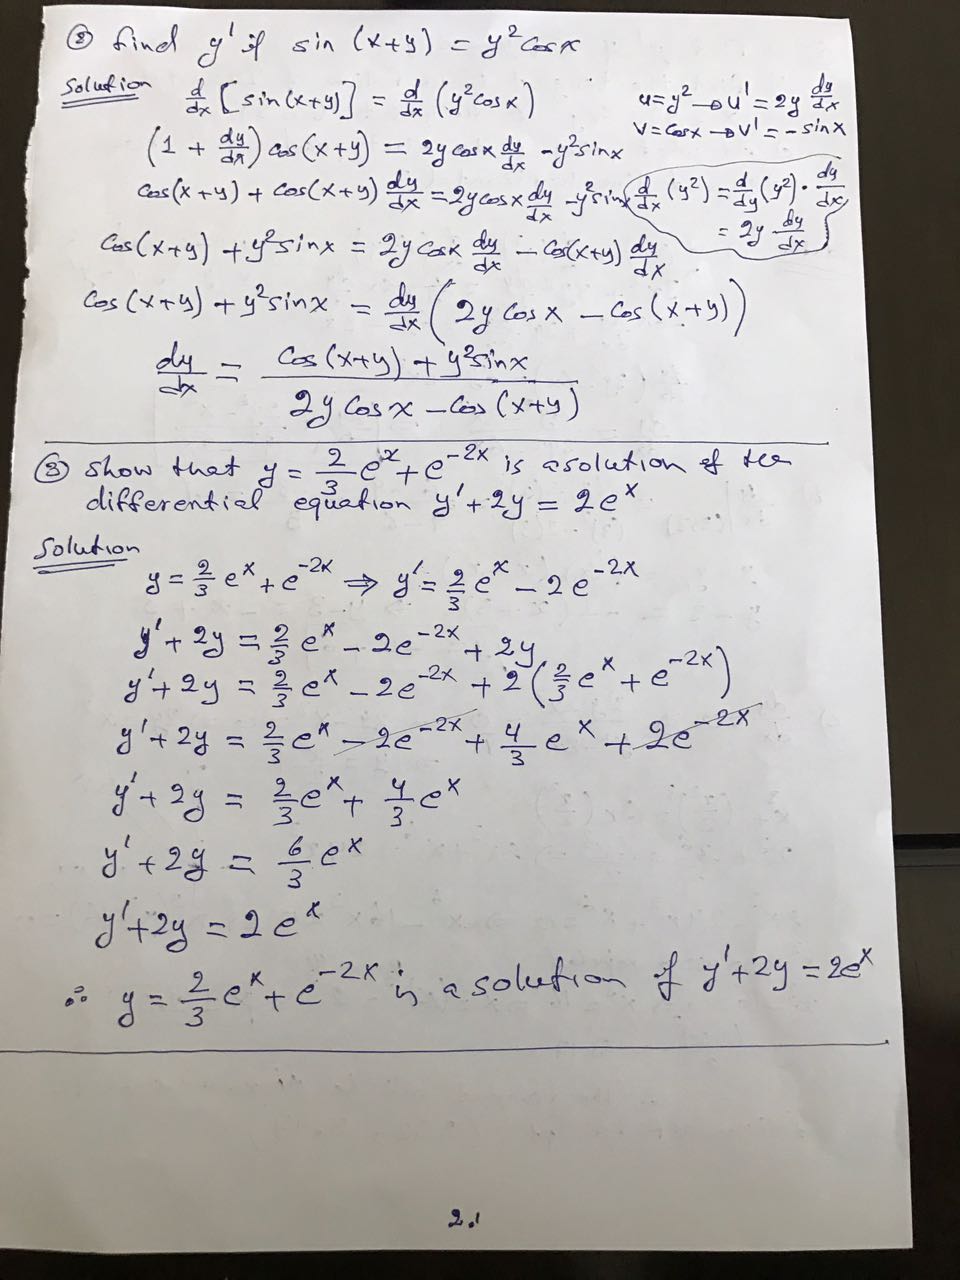 ② find y' if sin (x+y) = y² cosx
Solution d/dx [sin(x+y)] = d/dx (y² cosx)
u = y² → u' = 2y dy/dx
v = cosx → v' = - sinx
(1 + dy/dx) cos(x+y) = 2y cosx dy/dx - y² sinx
cos(x+y) + cos(x+y) dy/dx = 2y cosx dy/dx - y² sinx
d/dx (y²) = d/dy (y²) · dy/dx
= 2y dy/dx
cos(x+y) + y² sinx = 2y cosx dy/dx - cos(x+y) dy/dx
cos(x+y) + y² sinx = dy/dx (2y cosx - cos(x+y))
dy/dx = cos(x+y) + y² sinx / 2y cosx - cos(x+y)
③ show that y = 2/3 eˣ + e⁻²ˣ is a solution of the
differential equation y' + 2y = 2eˣ
Solution
y = 2/3 eˣ + e⁻²ˣ ⇒ y' = 2/3 eˣ - 2e⁻²ˣ
y' + 2y = 2/3 eˣ - 2e⁻²ˣ + 2y
y' + 2y = 2/3 eˣ - 2e⁻²ˣ + 2(2/3 eˣ + e⁻²ˣ)
y' + 2y = 2/3 eˣ - 2e⁻²ˣ + 4/3 eˣ + 2e⁻²ˣ
y' + 2y = 2/3 eˣ + 4/3 eˣ
y' + 2y = 6/3 eˣ
y' + 2y = 2eˣ
∴ y = 2/3 eˣ + e⁻²ˣ is a solution of y' + 2y = 2eˣ
2.1